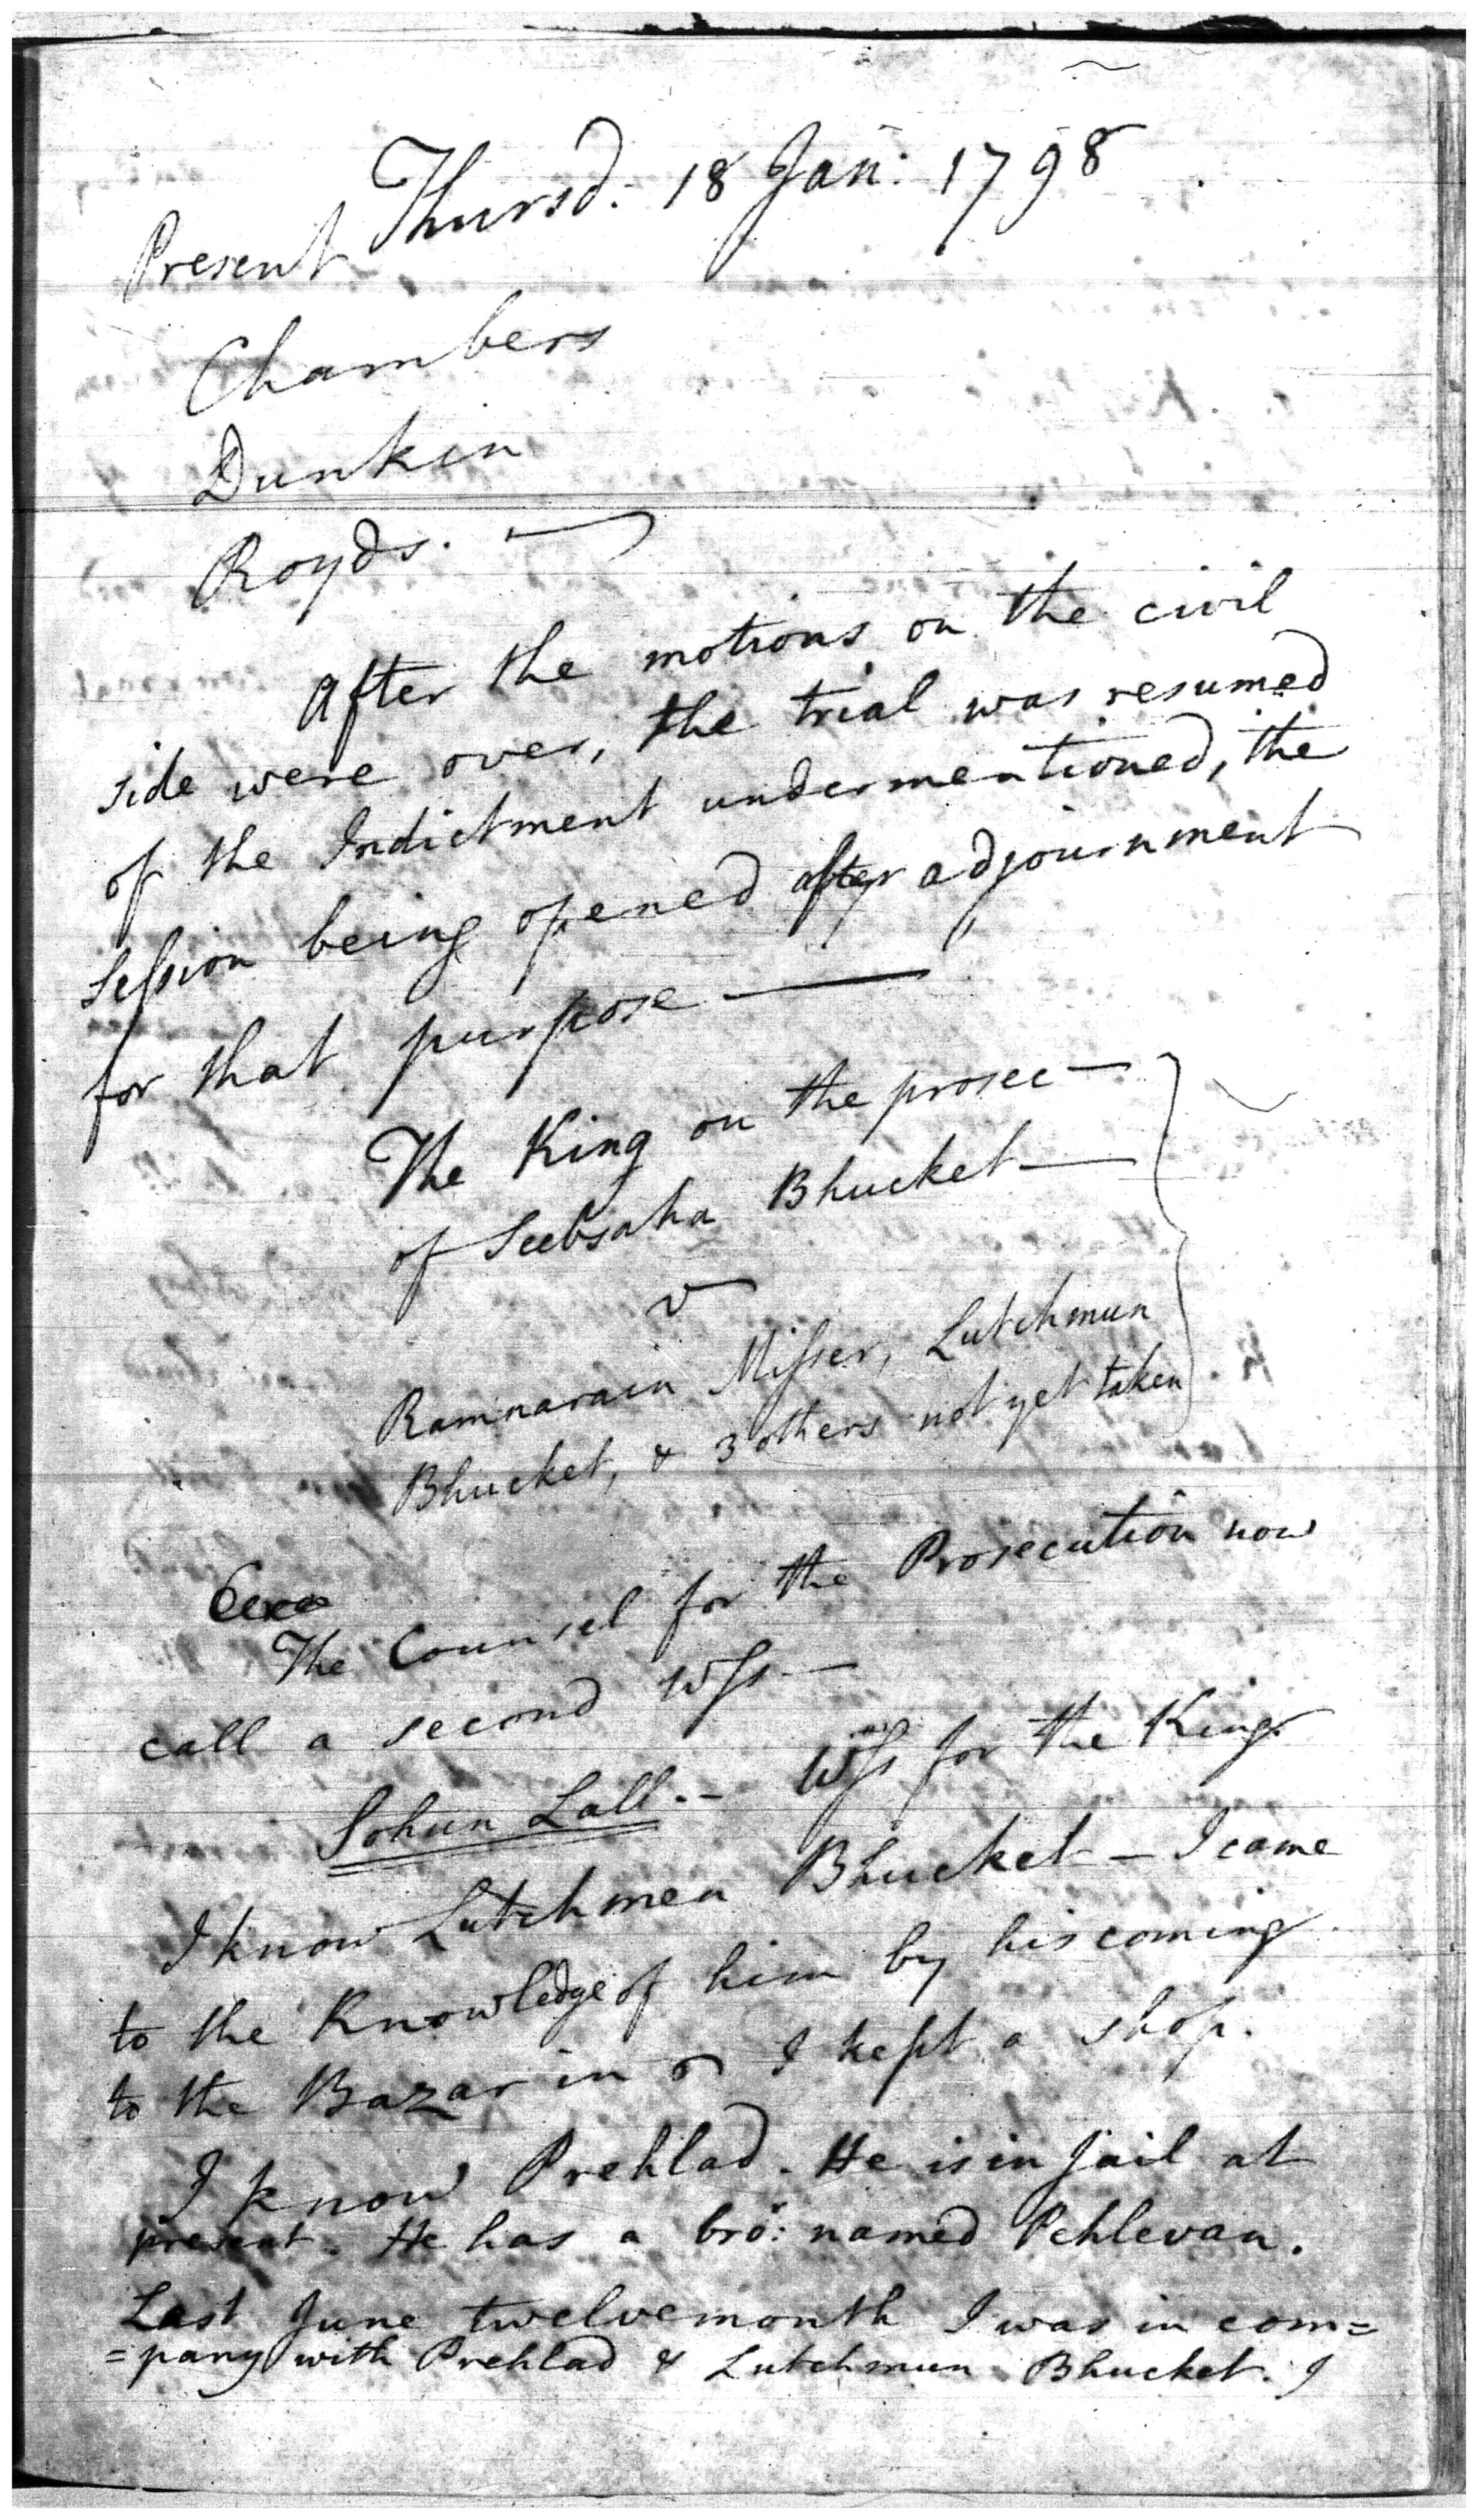 Thursd: 18 Jan: 1798
Present
Chambers
Dunkin
Royds.
After the motions on the civil
side were over, the trial was resumed
of the Indictment undermentioned, the
Session being opened after adjournment
for that purpose —
The King on the prosec —
of Seebsaha Bhucket —
v
Ramnarain Misser, Lutchmun
Bhucket, & 3 others not yet taken
The Counsel for the Prosecution now
call a second Wss —
Sohun Lall. — Wss for the King
I know Lutchmen Bhucket — I came
to the Knowledge of him by his coming
to the Bazar in I kept a shop.
I know Prehlad. He is in Jail at
present. He has a bro: named Pehlevan.
Last June twelvemonth I was in com=
=pany with Prehlad & Lutchmun Bhucket. I